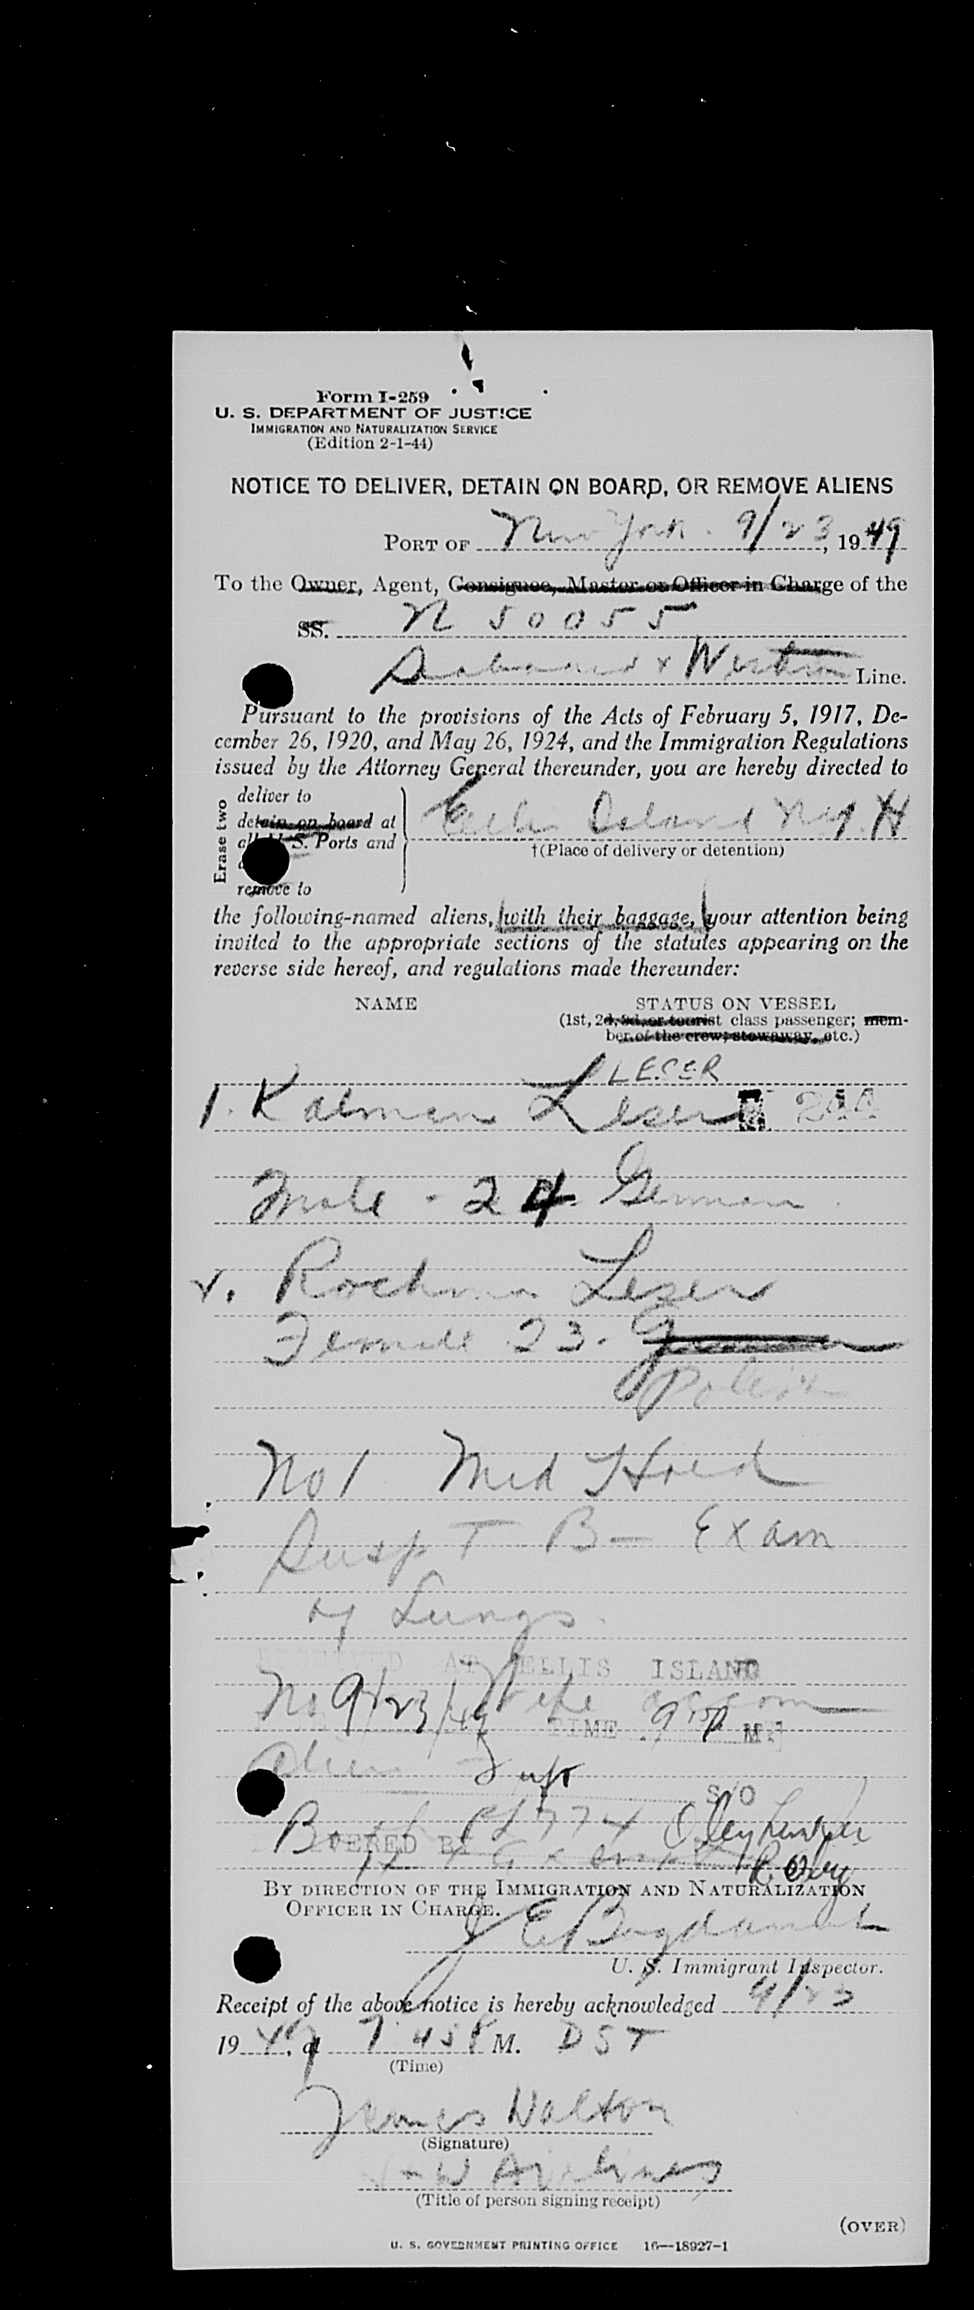 Form I-259
U. S. DEPARTMENT OF JUSTICE
IMMIGRATION AND NATURALIZATION SERVICE
(Edition 2-1-44)
NOTICE TO DELIVER, DETAIN ON BOARD, OR REMOVE ALIENS
PORT OF New York. 9/23, 1949
To the Owner, Agent, Consignee, Master or Officer in Charge of the
SS. N 50055
Seaboard & Western Line.
Pursuant to the provisions of the Acts of February 5, 1917, De-
cember 26, 1920, and May 26, 1924, and the Immigration Regulations
issued by the Attorney General thereunder, you are hereby directed to
Erase two
deliver to
detain on board at
all U. S. Ports and
remove to
Ellis Island N.Y.H
†(Place of delivery or detention)
the following-named aliens, with their baggage, your attention being
invited to the appropriate sections of the statutes appearing on the
reverse side hereof, and regulations made thereunder:
NAME STATUS ON VESSEL
(1st, 2d, 3d, or tourist class passenger; mem-
ber of the crew; stowaway, etc.)
LESER
1. Kalman Leser 244
Male - 24 German
2. Rochma Leser
Female 23. German
Polish
No 1 Med Hold
Susp T B - Exam
of Lungs.
AT ELLIS ISLAND
No 9/23/49 TIME M.
Alien
S/O
Both
BY DIRECTION OF THE IMMIGRATION AND NATURALIZATION
OFFICER IN CHARGE.
U. S. Immigrant Inspector.
Receipt of the above notice is hereby acknowledged 9/23
1949, at 7 45P M. DST
(Time)
James Walton
(Signature)
S-W Airlines
(Title of person signing receipt)
(OVER)
U. S. GOVERNMENT PRINTING OFFICE 16—18927-1